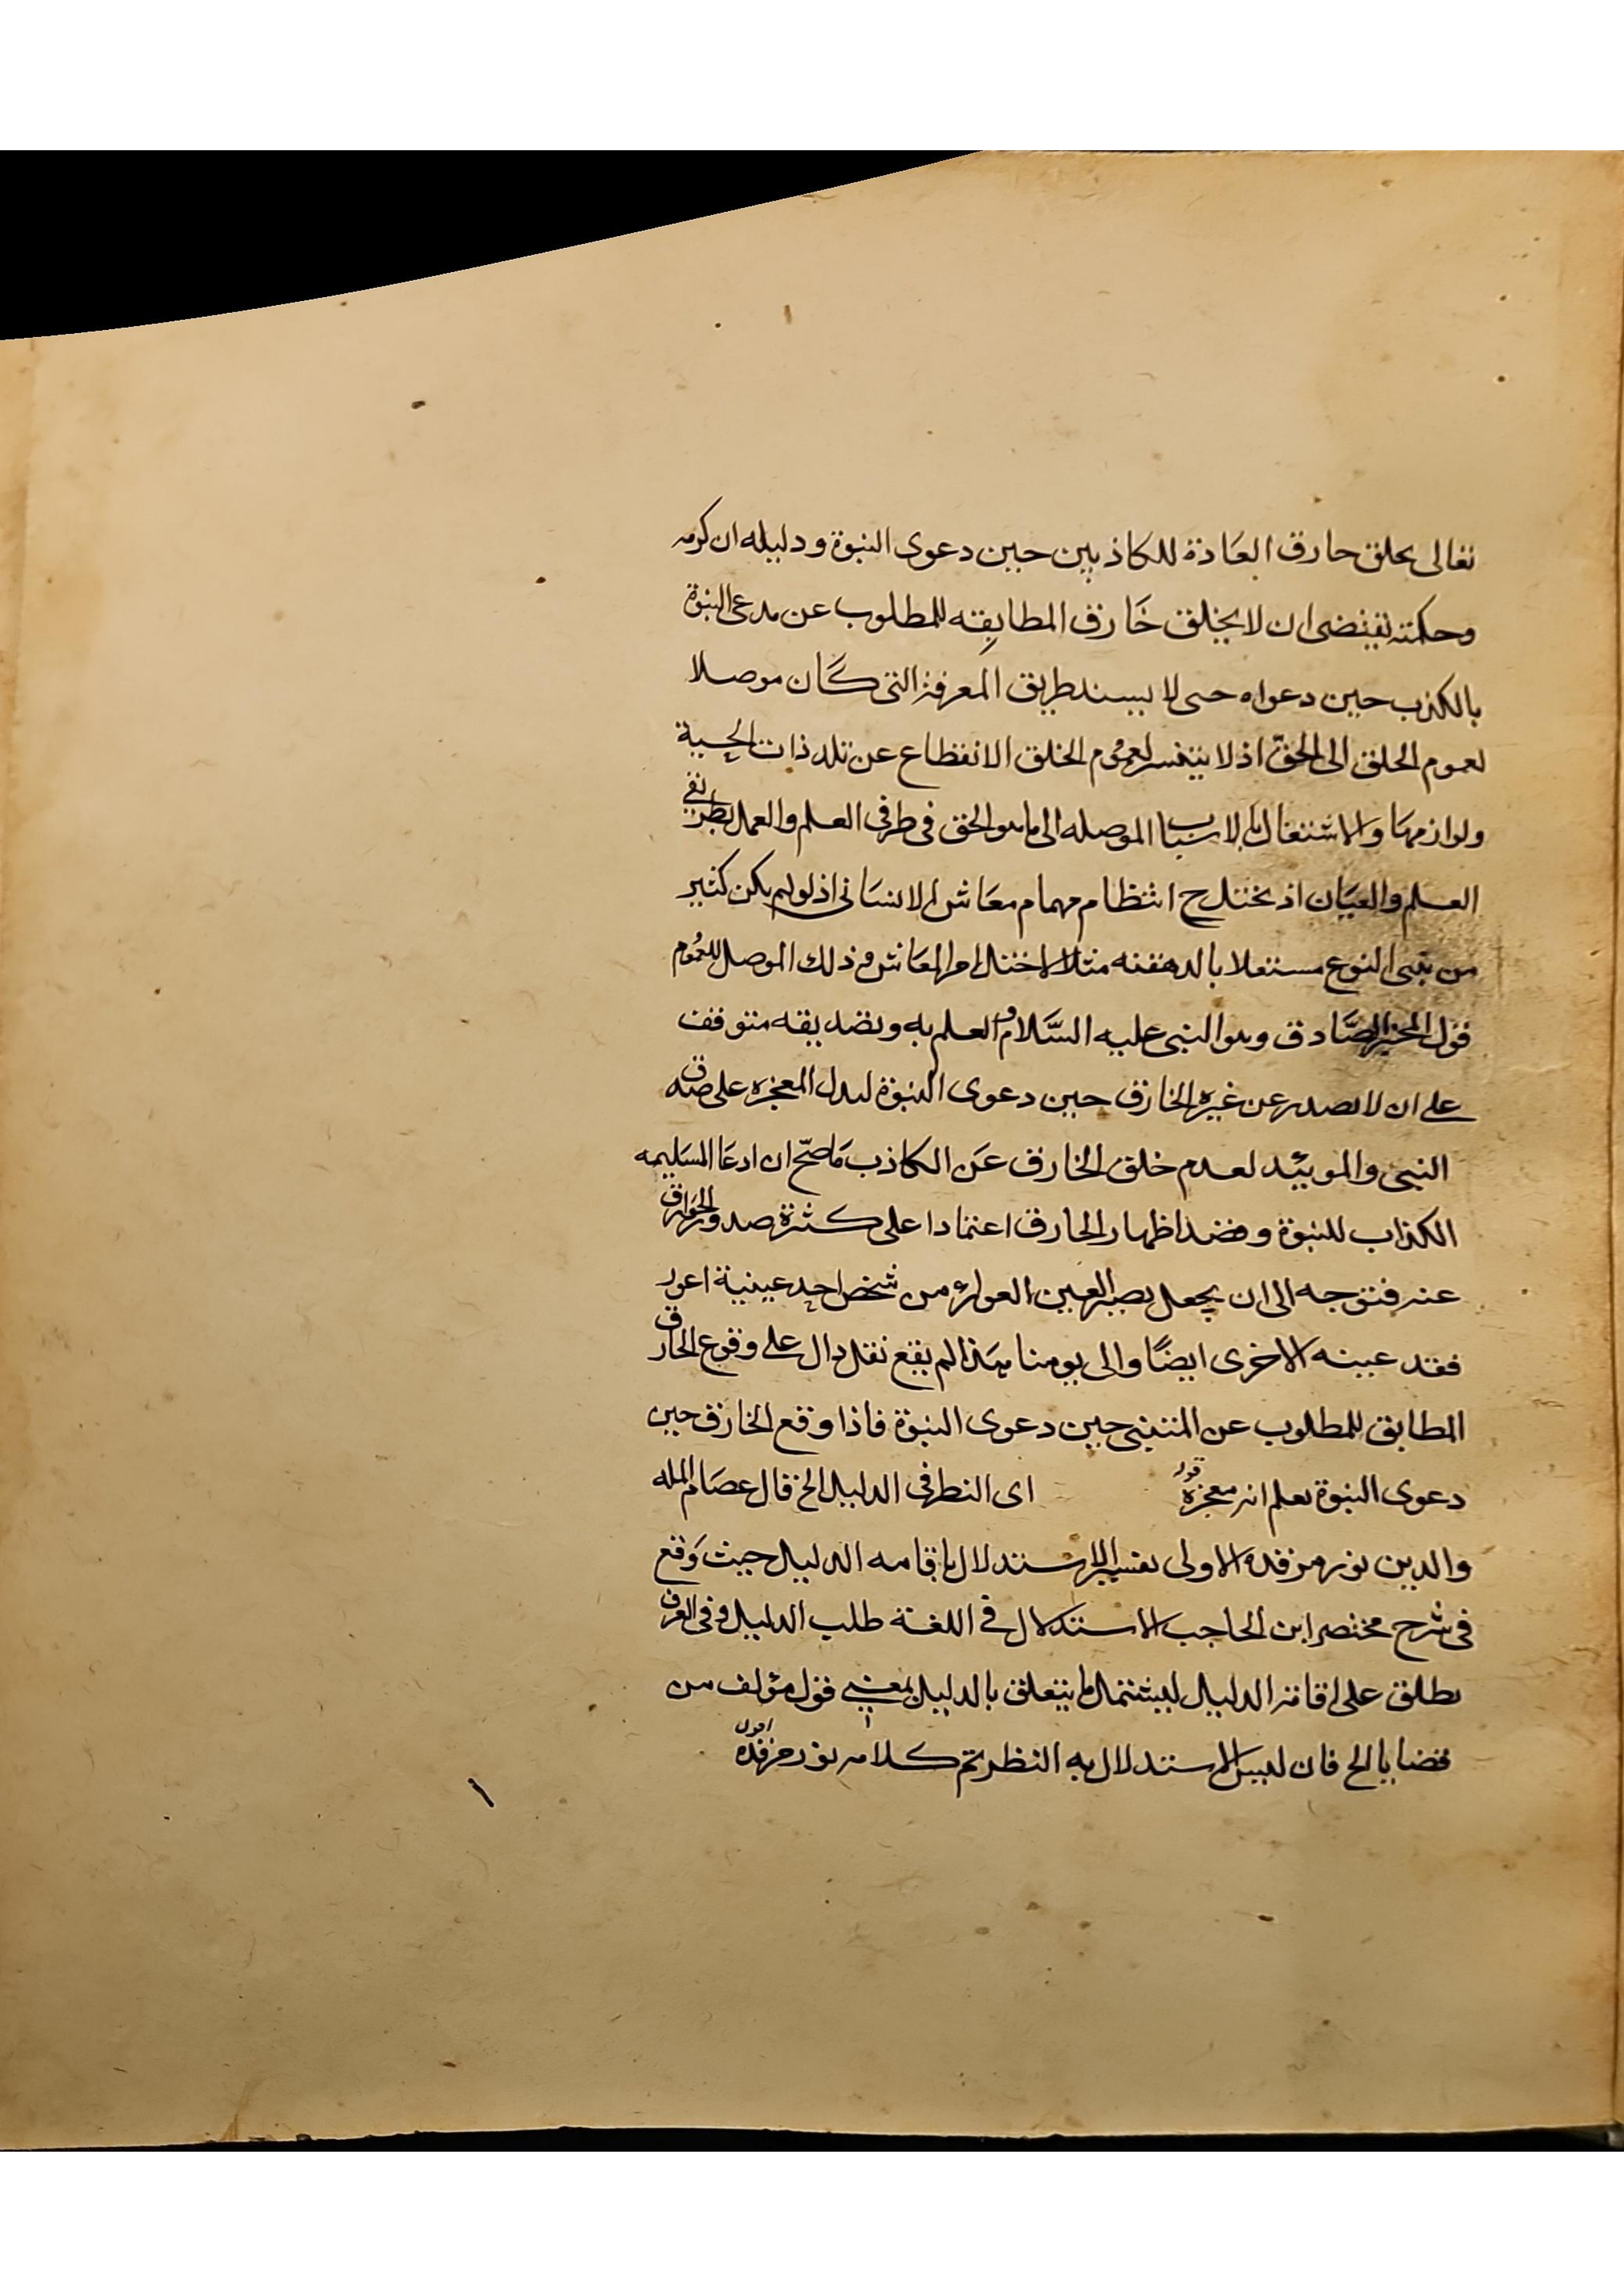 تعالى يخلق خارق العادة للكاذبين حين دعوى النبوة ودليله ان كرمه
وحكمته يقتضى ان لا يخلق خارق المطابقه للمطلوب عن مدعى النبوة
بالكذب حين دعواه حتى لا ينسد طريق المعرفة التى كان موصلا
لعموم الخلق الى الحق اذ لا يتيسر لعموم الخلق الانقطاع عن تلذذات الحسية
ولوازمها والاشتغال بالاسباب الموصله الى ما هو الحق فى طرفى العلم والعمل بطريقى
العلم والعيان اذ يختل ح انتظام مهمام معاش الانسانى اذ لو لم يكن كثير
من بنى النوع مستغلا بالدهقنه مثلا لاختل امر المعاش فذلك الموصل للعموم
قول المخبر الصادق وهو النبى عليه السلام والعلم به وتصديقه متوقف
على ان لا يصدر عن غيره الخارق حين دعوى النبوة ليدل المعجزه على صدقه
النبى والمويئد لعدم خلق الخارق عن الكاذب ما صح ان ادعا المسليمه
الكذاب للنبوة وقصد اظهار الخارق اعتمادا على كثرة صدور الخوارق
عنه فتوجه الى ان يجعل بصير العين العوراء من شخص احد عينية اعور
فقد عينه الاخرى ايضًا والى يومنا هذا لم يقع نقل دال على وقوع الخارق
المطابق للمطلوب عن المتنبى حين دعوى النبوة فاذا وقع الخارق حين
دعوى النبوة يعلم انه معجزه قوله اى النظر فى الدليل الخ قال عصام المله
والدين نور مرقده الاولى تفسير الاستدلال باقامه الدليل حيث وقع
فى شرح مختصر ابن الحاجب الاستدلال فى اللغة طلب الدليل وفى العرف
يطلق على اقامة الدليل ليشتمل ما يتعلق بالدليل بمعنى قول مؤلف من
قضايا الخ فان ليس الاستدلال به النظر تم كلامه نور مرقده اقول